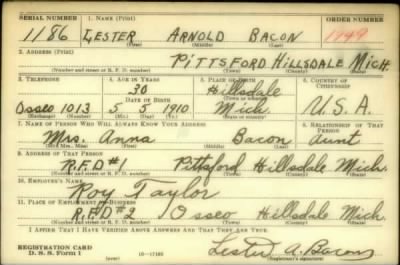 SERIAL NUMBER 1. NAME (Print) ORDER NUMBER
1186 LESTER ARNOLD BACON 1949
(First) (Middle) (Last)
2. ADDRESS (Print)
PITTSFORD HILLSDALE MICH.
(Number and street or R. F. D. number) (Town) (County) (State)
3. TELEPHONE 4. AGE IN YEARS 5. PLACE OF BIRTH 6. COUNTRY OF CITIZENSHIP
30 Hillsdale
DATE OF BIRTH (Town or county)
Osseo 1013 5 5 1910 Mich. U.S.A.
(Exchange) (Number) (Mo.) (Day) (Yr.) (State or country)
7. NAME OF PERSON WHO WILL ALWAYS KNOW YOUR ADDRESS 8. RELATIONSHIP OF THAT PERSON
Mrs. Anna Bacon Aunt
(Mr., Mrs., Miss) (First) (Middle) (Last)
9. ADDRESS OF THAT PERSON
R.F.D #1 Pittsford Hillsdale Mich.
(Number and street or R. F. D. number) (Town) (County) (State)
10. EMPLOYER'S NAME
Roy Taylor
11. PLACE OF EMPLOYMENT OR BUSINESS
R.F.D #2 Osseo Hillsdale Mich.
(Number and street or R. F. D. number) (Town) (County) (State)
I AFFIRM THAT I HAVE VERIFIED ABOVE ANSWERS AND THAT THEY ARE TRUE.
REGISTRATION CARD
D. S. S. Form 1 16—17105 Lester A. Bacon
(Registrant's signature)